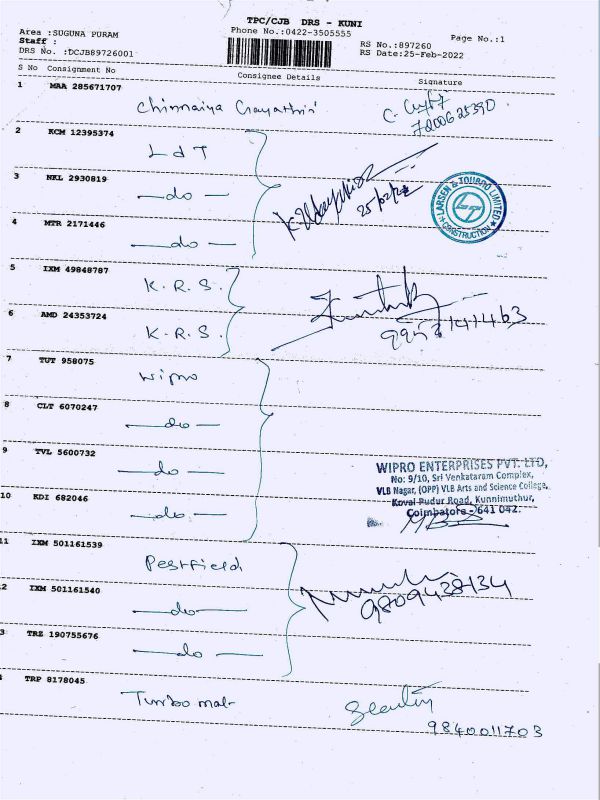 TPC/CJB DRS - KUNI
Area :SUGUNA PURAM
Phone No.:0422-3505555
Page No.:1
Staff :
RS No.:897260
DRS No. :DCJB89726001
RS Date:25-Feb-2022
S No Consignment No Consignee Details Signature
1 MAA 285671707
Chinnaiya Gayathri
7200625390
2 KCM 12395374
L d T
3 NKL 2930819
—do—
25/02/22
LARSEN & TOUBRO LIMITED
CONSTRUCTION
4 MTR 2171446
—do—
5 IXM 49848787
K.R.S.
6 AMD 24353724
K.R.S.
7 TUT 958075
Wipro
8 CLT 6070247
—do—
9 TVL 5600732
—do—
WIPRO ENTERPRISES PVT. LTD,
No: 9/10, Sri Venkataram Complex,
VLB Nagar, (OPP) VLB Arts and Science College,
Kovai Pudur Road, Kunnimuthur,
Coimbatore - 641 042.
10 KDI 682046
—do—
11 IXM 501161539
Pestfield
2 IXM 501161540
—do—
9809428134
3 TRZ 190755676
—do—
TRP 8178045
Turbo mat
9840011703